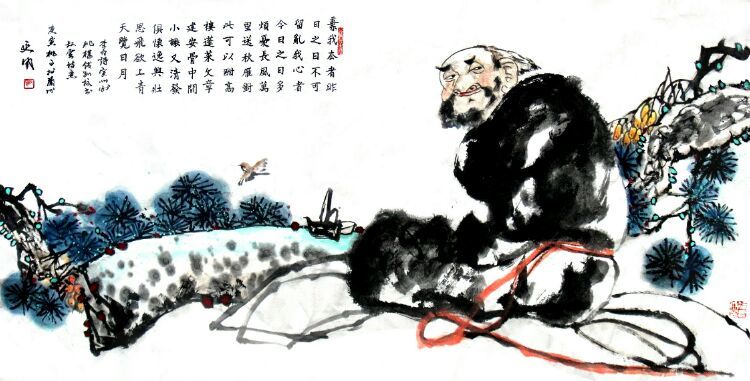 棄我去者昨
日之日不可
留亂我心者
今日之日多
煩憂長風萬
里送秋雁對
此可以酣高
樓蓬萊文章
建安骨中間
小謝又清發
俱懷逸興壯
思飛欲上青
天覽日月
李白詩宣州謝
朓樓餞別校書